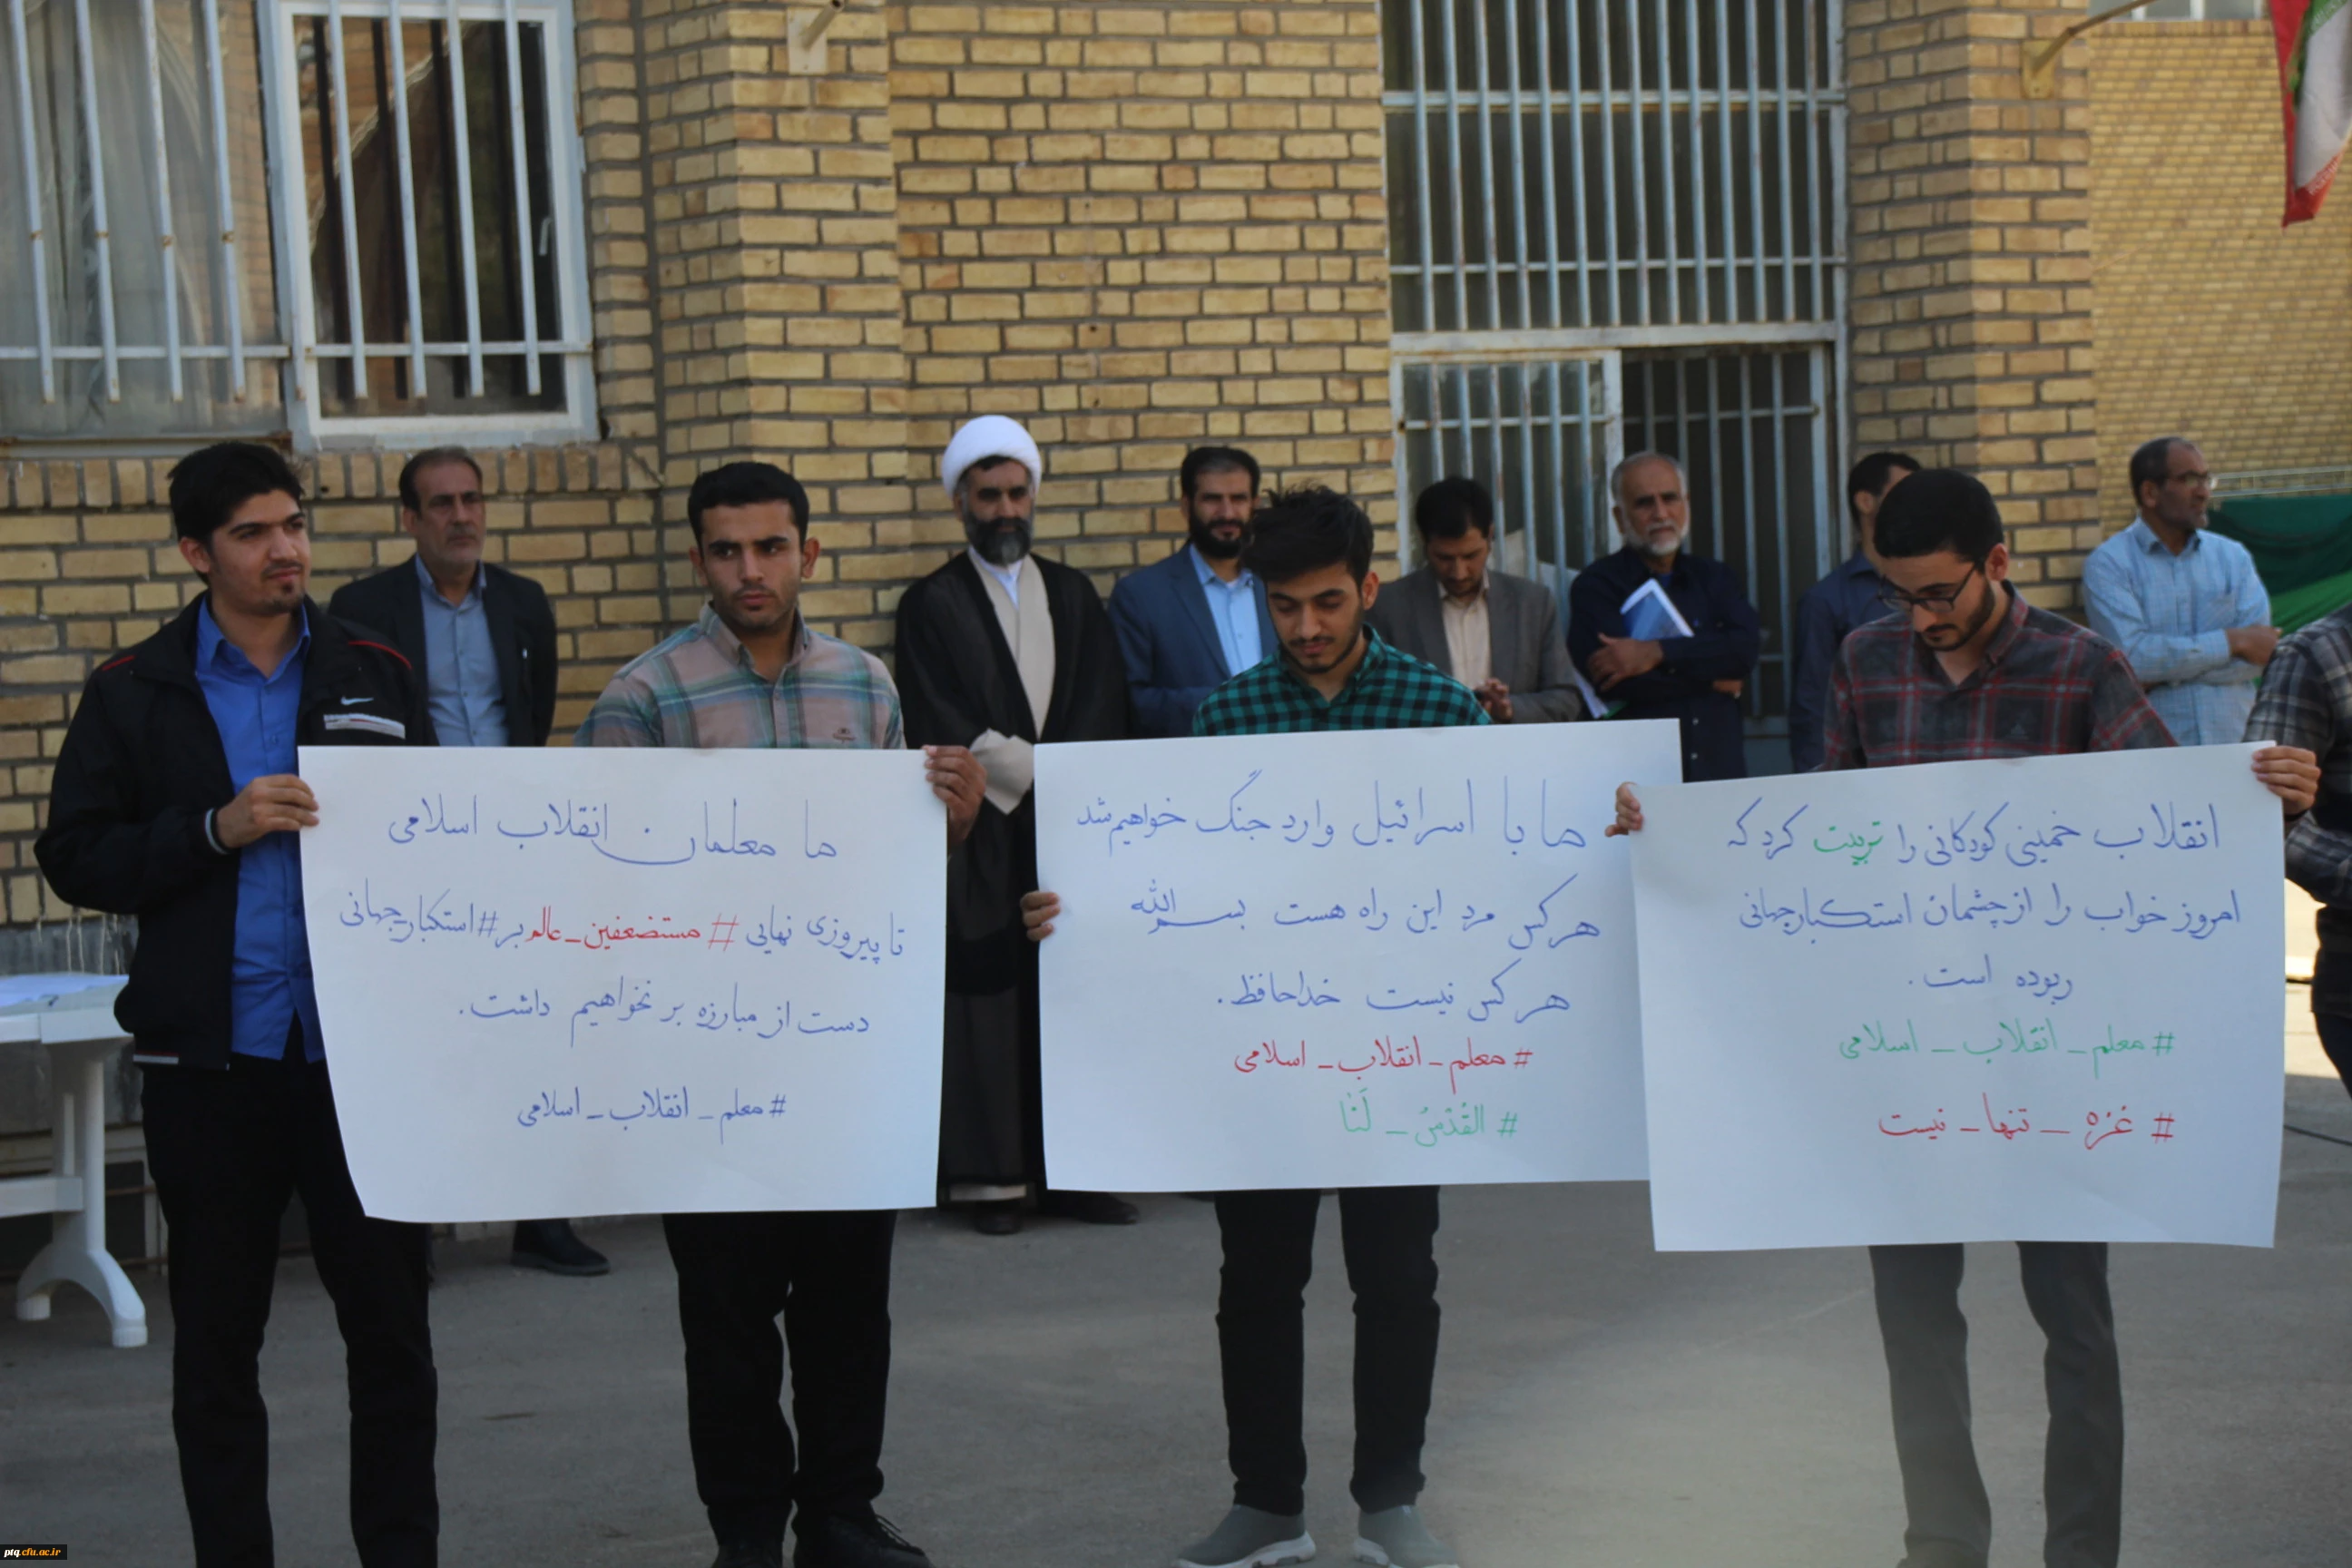 ما معلمان انقلاب اسلامی
تا پیروزی نهایی #مستضعفین_عالم بر #استکبار جهانی
دست از مبارزه بر نخواهیم داشت.
#معلم_انقلاب_اسلامی
ما با اسرائیل وارد جنگ خواهیم شد
هر کس مرد این راه هست بسم الله
هر کس نیست خداحافظ.
#معلم_انقلاب_اسلامی
#القُدْسُ_لَنٰا
انقلاب خمینی کودکانی را تربیت کرد که
امروز خواب را از چشمان استکبار جهانی
ربوده است.
#معلم_انقلاب_اسلامی
#غزه_تنها_نیست
ptq.cfu.ac.ir